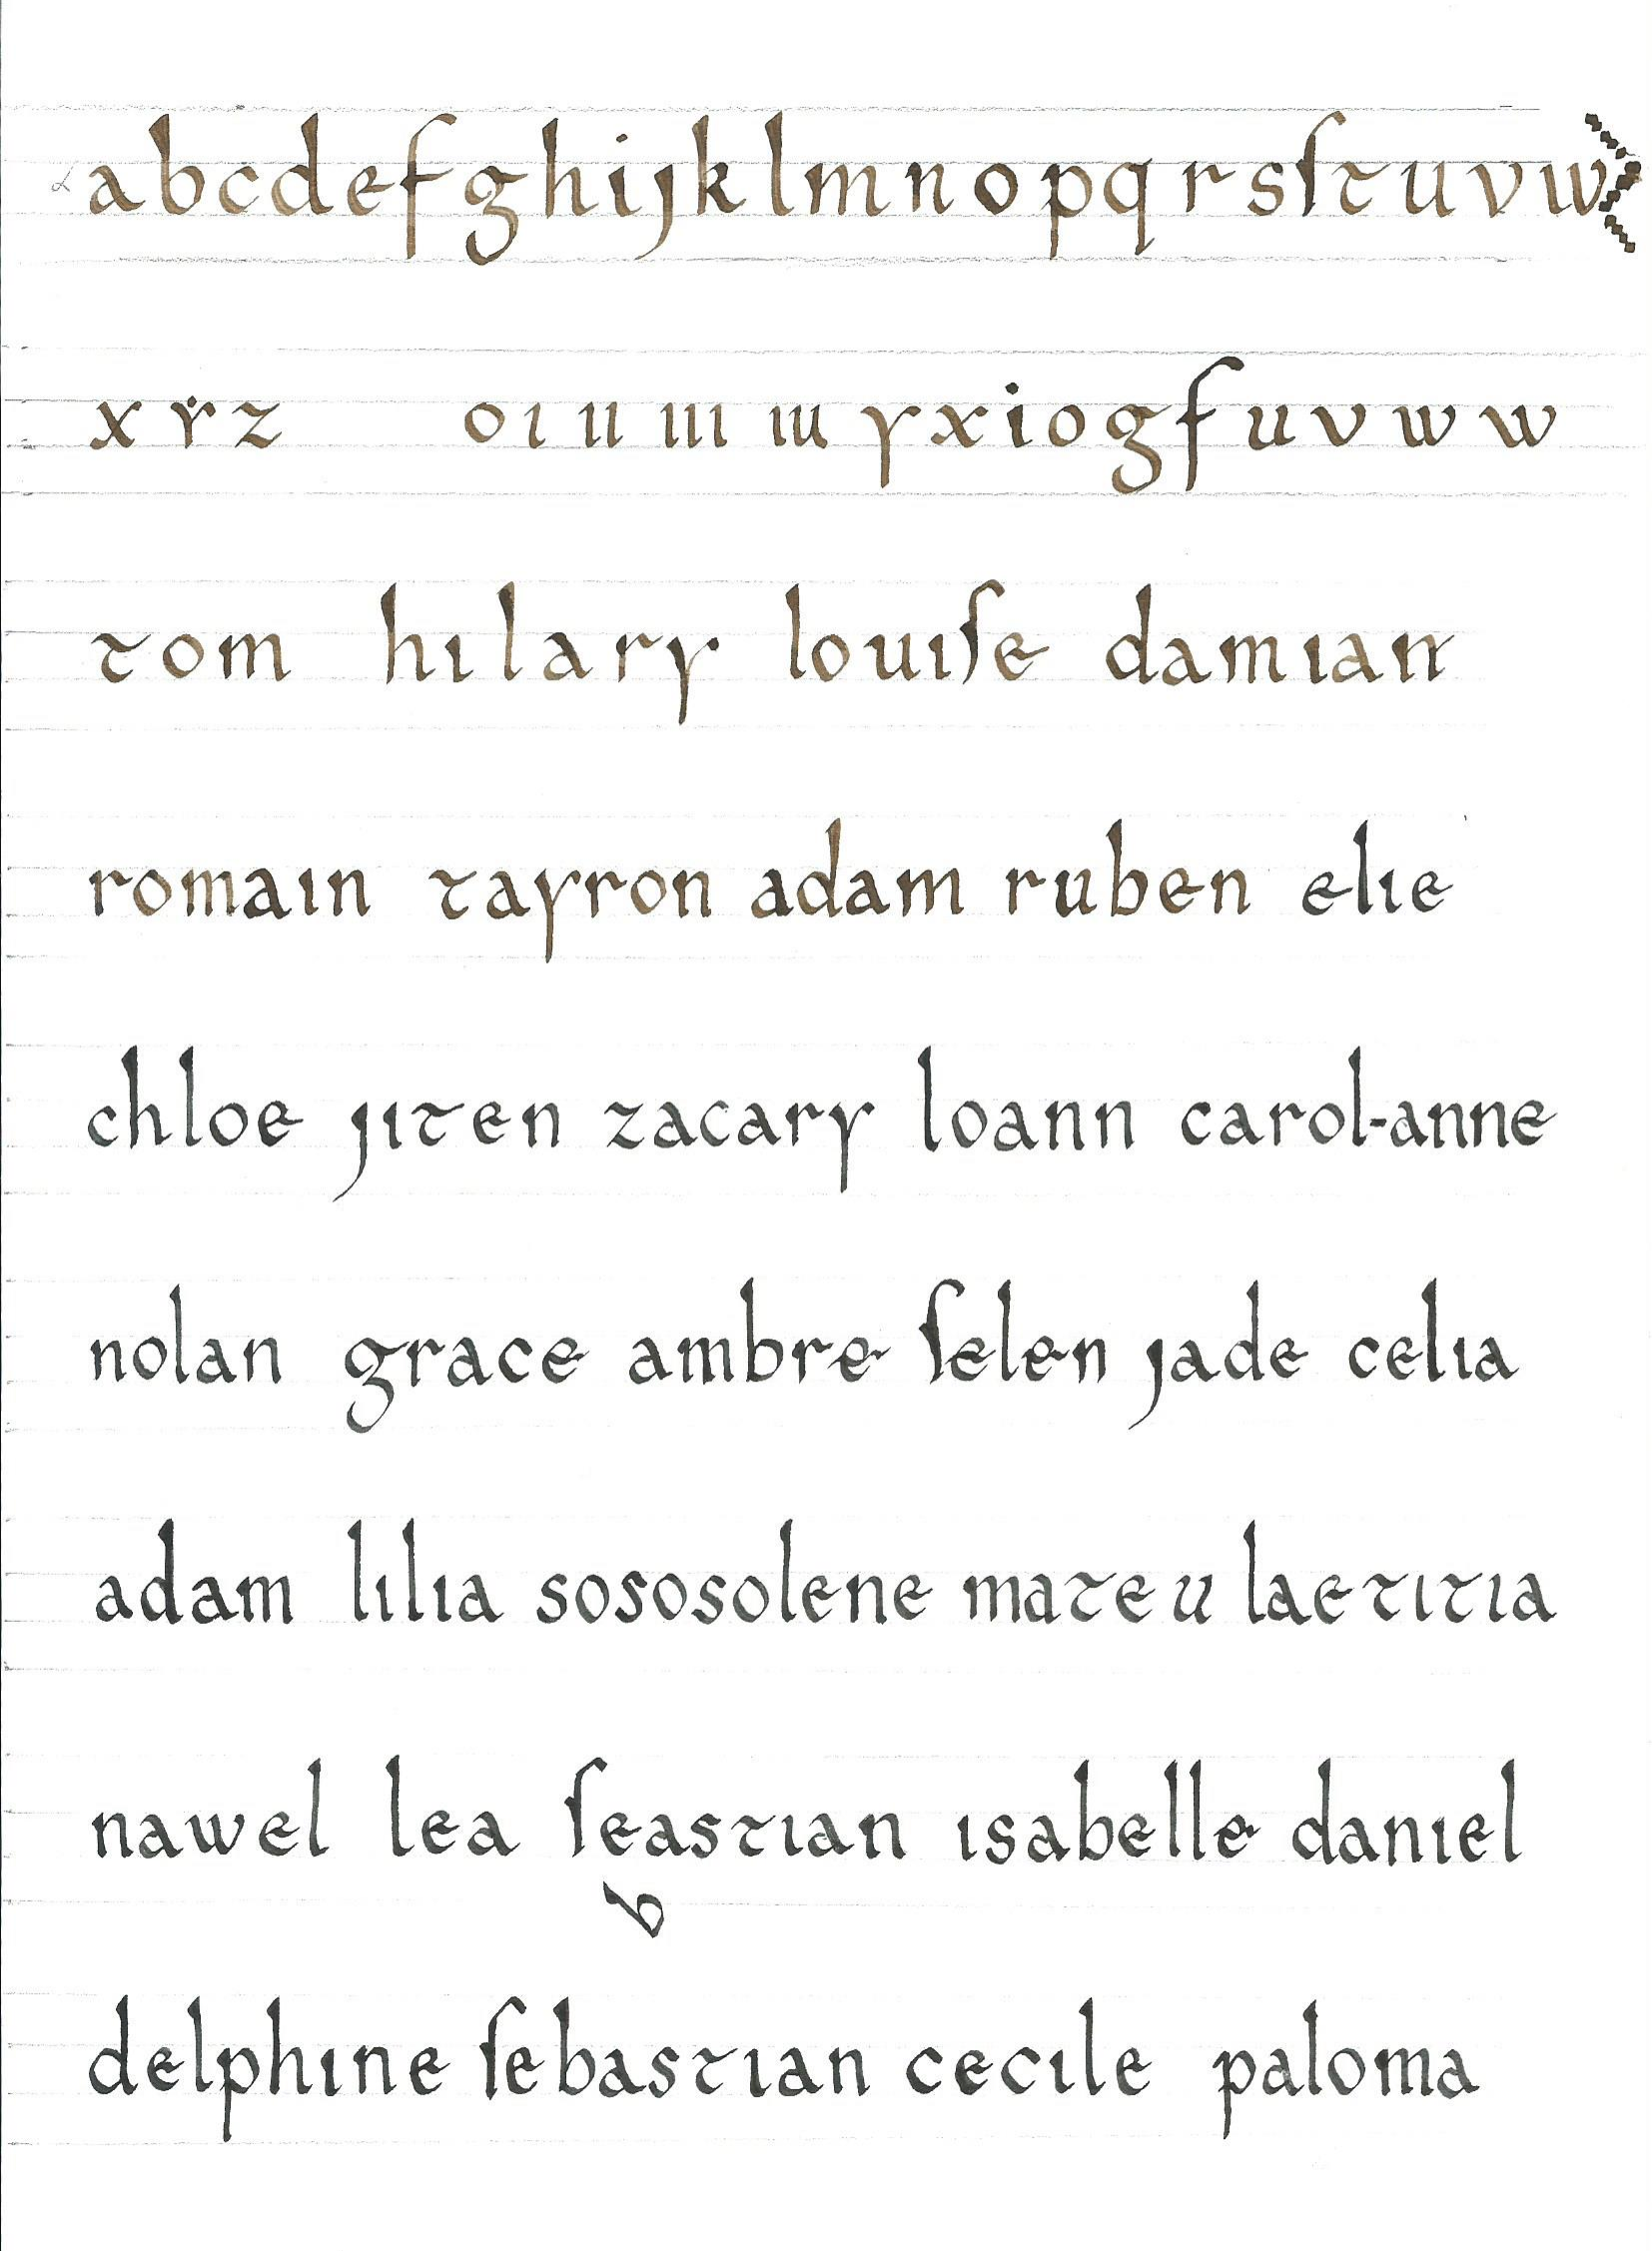 abcdefghijklmnopqrsſtuvw
x ẏ z o ı ıı ııı ıııı y x i o g f u v w w
tom hılary louıſe damıan
romaın tayron adam ruben elıe
chloe jıten zacary loann carol-anne
nolan grace ambre ſelen jade celıa
adam lılıa sososolene mateu laetıtıa
nawel lea ſeastıan ısabelle danıel
b
delphıne ſebastıan cecıle paloma